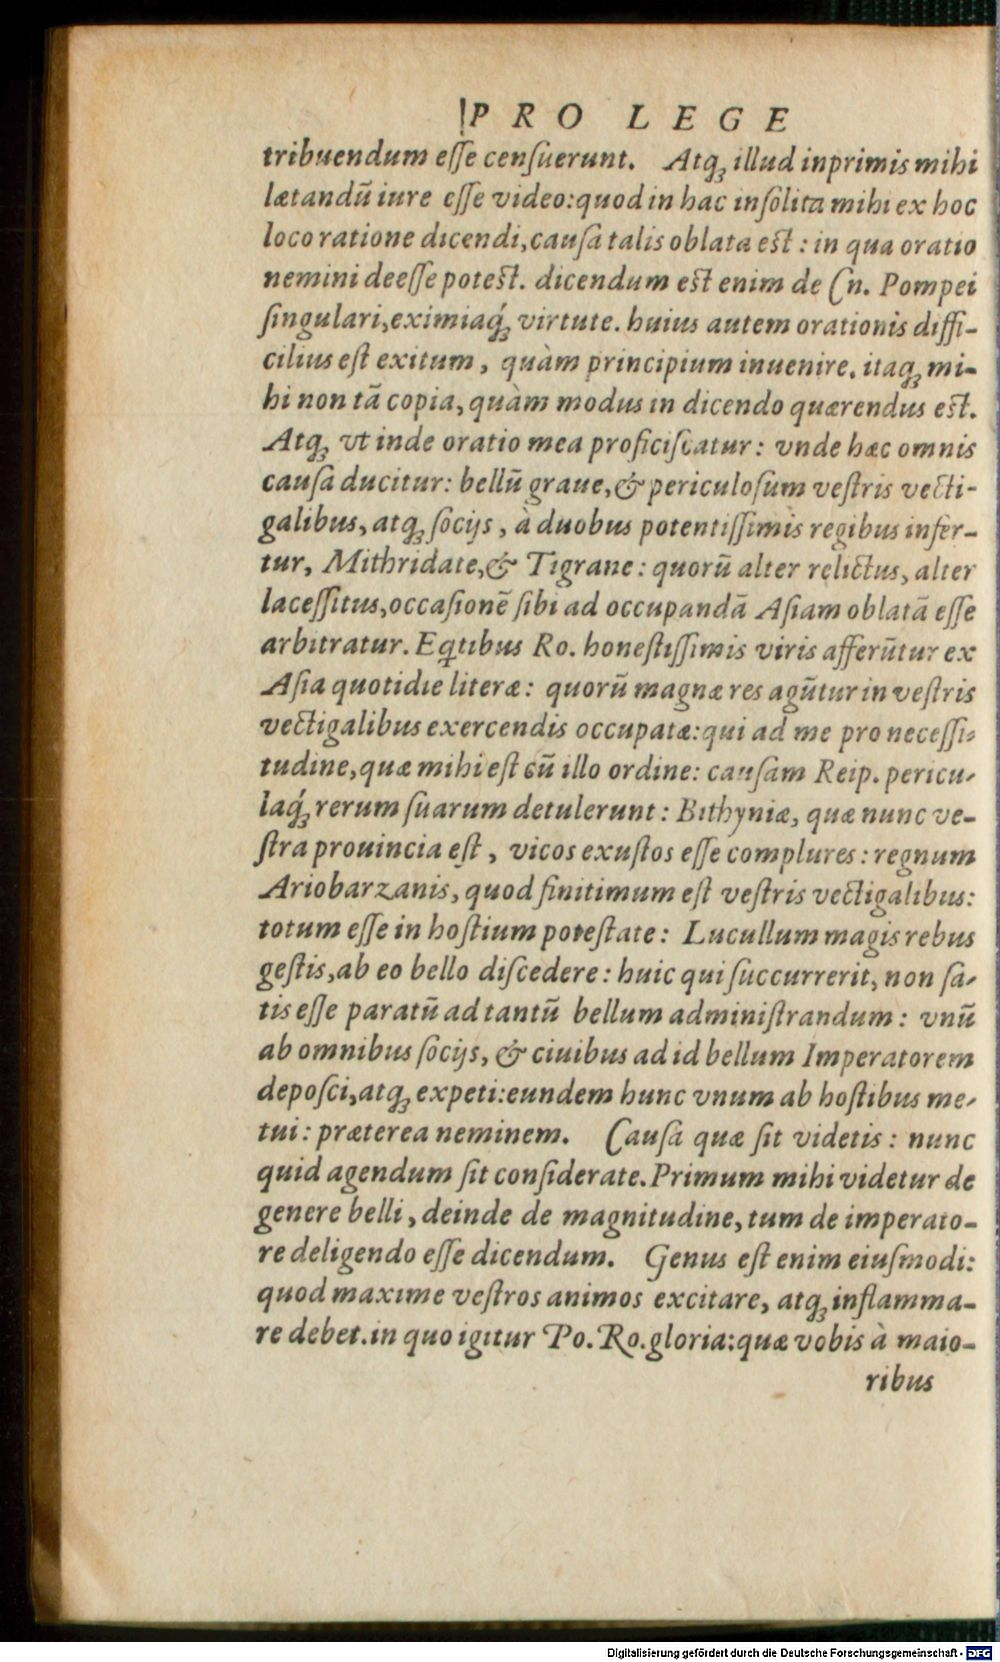 PRO LEGE
tribuendum eſſe cenſuerunt. Atqꝫ illud inprimis mihi
lætandũ iure eſſe video: quod in hac inſolita mihi ex hoc
loco ratione dicendi, cauſa talis oblata eſt: in qua oratio
nemini deeſſe poteſt. dicendum eſt enim de Cn. Pompei
ſingulari, eximiaq́ꝫ virtute. huius autem orationis diffi-
cilius eſt exitum, quàm principium inuenire. itaqꝫ mi-
hi non tã copia, quàm modus in dicendo quærendus eſt.
Atqꝫ vt inde oratio mea proficiſcatur: vnde hæc omnis
cauſa ducitur: bellũ graue, & periculoſum veſtris vecti-
galibus, atqꝫ ſocijs, à duobus potentiſſimis regibus infer-
tur, Mithridate, & Tigrane: quorũ alter relictus, alter
laceſſitus, occaſionẽ ſibi ad occupandã Aſiam oblatã eſſe
arbitratur. Eqtibus Ro. honeſtiſſimis viris afferũtur ex
Aſia quotidie literæ: quorũ magnæ res agũtur in veſtris
vectigalibus exercendis occupatæ: qui ad me pro neceſſi-
tudine, quæ mihi eſt cũ illo ordine: cauſam Reip. pericu-
laq́ꝫ rerum ſuarum detulerunt: Bithyniæ, quæ nunc ve-
ſtra prouincia eſt, vicos exuſtos eſſe complures: regnum
Ariobarzanis, quod finitimum eſt veſtris vectigalibus:
totum eſſe in hoſtium poteſtate: Lucullum magis rebus
geſtis, ab eo bello diſcedere: huic qui ſuccurrerit, non ſa-
tis eſſe paratũ ad tantũ bellum adminiſtrandum: vnũ
ab omnibus ſocijs, & ciuibus ad id bellum Imperatorem
depoſci, atqꝫ expeti: eundem hunc vnum ab hoſtibus me-
tui: præterea neminem. Cauſa quæ ſit videtis: nunc
quid agendum ſit conſiderate. Primum mihi videtur de
genere belli, deinde de magnitudine, tum de imperato-
re deligendo eſſe dicendum. Genus eſt enim eiuſmodi:
quod maxime veſtros animos excitare, atqꝫ inflamma-
re debet. in quo igitur Po. Ro. gloria: quæ vobis à maio-
ribus
Digitalisierung gefördert durch die Deutsche Forschungsgemeinschaft - DFG